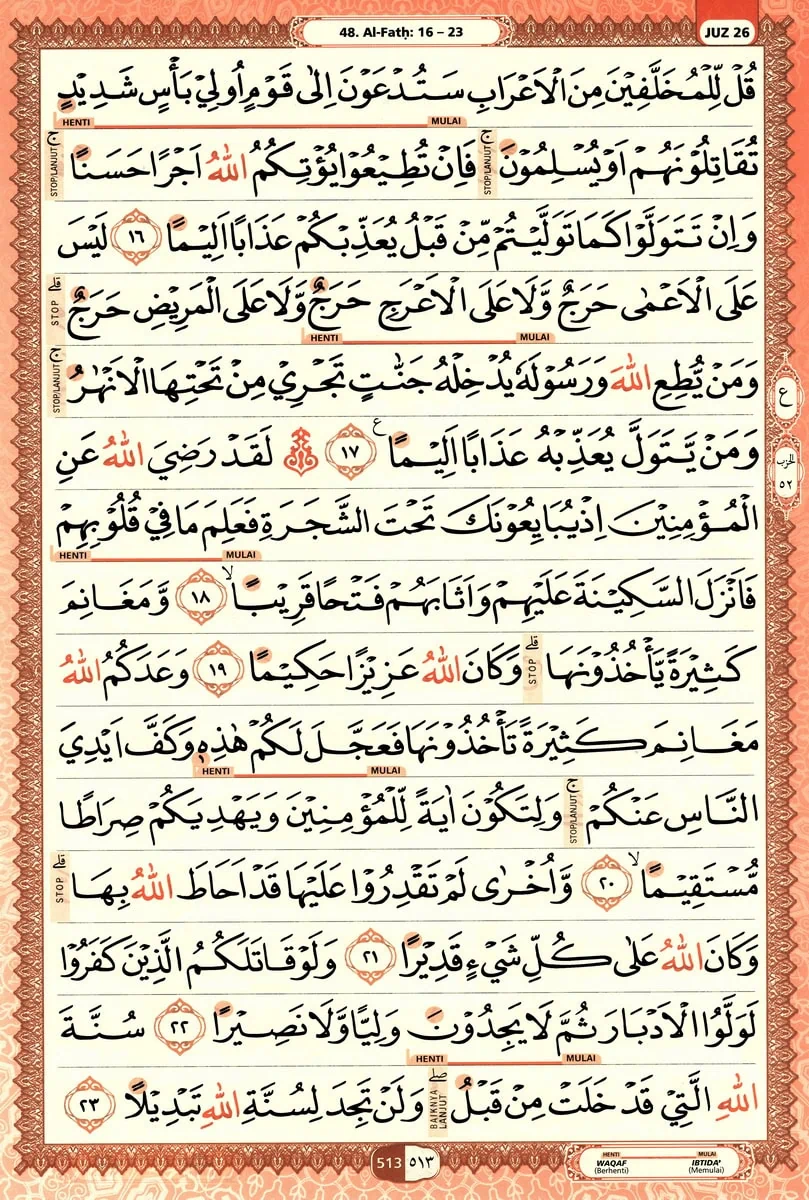 48. Al-Fatḥ: 16 – 23
JUZ 26
قُلْ لِّلْمُخَلَّفِيْنَ مِنَ الْاَعْرَابِ سَتُدْعَوْنَ اِلٰى قَوْمٍ اُولِيْ بَأْسٍ شَدِيْدٍ
HENTI MULAI
تُقَاتِلُوْنَهُمْ اَوْ يُسْلِمُوْنَ ۚ فَاِنْ تُطِيْعُوْا يُؤْتِكُمُ اللّٰهُ اَجْرًا حَسَنًا ۚ
STOP/LANJUT STOP/LANJUT
وَاِنْ تَتَوَلَّوْا كَمَا تَوَلَّيْتُمْ مِّنْ قَبْلُ يُعَذِّبْكُمْ عَذَابًا اَلِيْمًا ١٦ لَيْسَ
عَلَى الْاَعْمٰى حَرَجٌ وَّلَا عَلَى الْاَعْرَجِ حَرَجٌ وَّلَا عَلَى الْمَرِيْضِ حَرَجٌ ۗ
STOP
HENTI MULAI
وَمَنْ يُّطِعِ اللّٰهَ وَرَسُوْلَهٗ يُدْخِلْهُ جَنّٰتٍ تَجْرِيْ مِنْ تَحْتِهَا الْاَنْهٰرُ ۚ
STOP/LANJUT
وَمَنْ يَّتَوَلَّ يُعَذِّبْهُ عَذَابًا اَلِيْمًا ع ١٧ ۞ لَقَدْ رَضِيَ اللّٰهُ عَنِ
ع
الحزب ٥٢
الْمُؤْمِنِيْنَ اِذْ يُبَايِعُوْنَكَ تَحْتَ الشَّجَرَةِ فَعَلِمَ مَا فِيْ قُلُوْبِهِمْ
HENTI MULAI
فَاَنْزَلَ السَّكِيْنَةَ عَلَيْهِمْ وَاَثَابَهُمْ فَتْحًا قَرِيْبًاۙ ١٨ وَّمَغَانِمَ
كَثِيْرَةً يَّأْخُذُوْنَهَا ۗ وَكَانَ اللّٰهُ عَزِيْزًا حَكِيْمًا ١٩ وَعَدَكُمُ اللّٰهُ
STOP
مَغَانِمَ كَثِيْرَةً تَأْخُذُوْنَهَا فَعَجَّلَ لَكُمْ هٰذِهٖ وَكَفَّ اَيْدِيَ
HENTI MULAI
النَّاسِ عَنْكُمْ ۚ وَلِتَكُوْنَ اٰيَةً لِّلْمُؤْمِنِيْنَ وَيَهْدِيَكُمْ صِرَاطًا
STOP/LANJUT
مُّسْتَقِيْمًاۙ ٢٠ وَّاُخْرٰى لَمْ تَقْدِرُوْا عَلَيْهَا قَدْ اَحَاطَ اللّٰهُ بِهَا ۗ
STOP
وَكَانَ اللّٰهُ عَلٰى كُلِّ شَيْءٍ قَدِيْرًا ٢١ وَلَوْ قَاتَلَكُمُ الَّذِيْنَ كَفَرُوْا
لَوَلَّوُا الْاَدْبَارَ ثُمَّ لَا يَجِدُوْنَ وَلِيًّا وَّلَا نَصِيْرًا ٢٢ سُنَّةَ
HENTI MULAI
اللّٰهِ الَّتِيْ قَدْ خَلَتْ مِنْ قَبْلُ ۖ وَلَنْ تَجِدَ لِسُنَّةِ اللّٰهِ تَبْدِيْلًا ٢٣
BAIKNYA LANJUT
513 ٥١٣
HENTI MULAI
WAQAF IBTIDA'
(Berhenti) (Memulai)